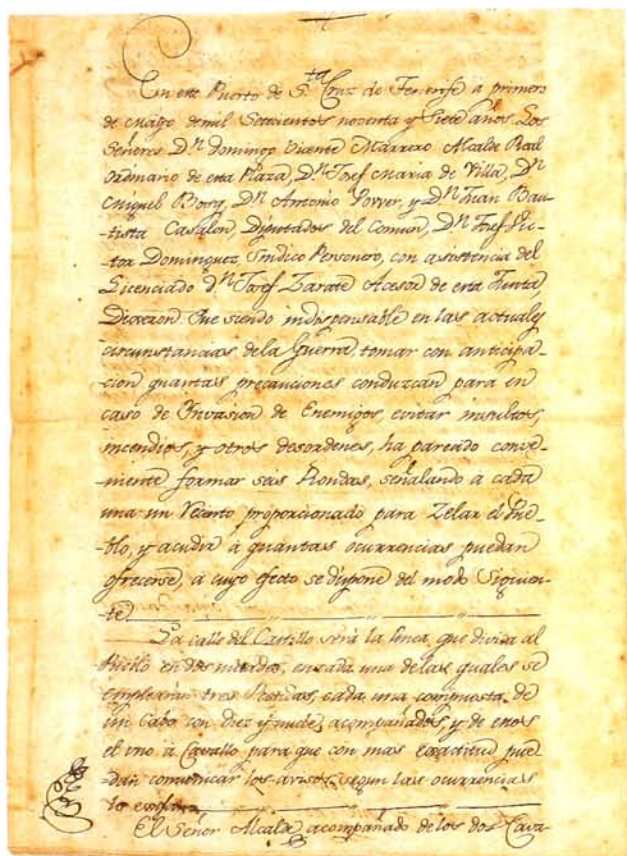 En este Puerto de S.ta Cruz de Tenerife a primero
de Mayo de mil Setecientos noventa y Siete años. Los
Señores D.n Domingo Vicente Marrero Alcalde Real
Ordinario de esta Plaza, D.n Josef Maria de Villa, D.n
Miguel Bosq, D.n Antonio Power, y D.n Juan Bau-
-tista Casalon, Diputados del Comun, D.n Josef Vic-
-tor Dominguez Sindico Personero, con asistencia del
Licenciado D.n Josef Zarate Acesor de esta Junta,
Dixeron: Que siendo indispensable en las actuales
circunstancias de la Guerra tomar con anticipa-
-cion quantas precauciones conduzcan para en
caso de Invasion de Enemigos, evitar insultos,
incendios, y otros desordenes, ha parecido conve-
-niente formar seis Rondas, señalando á cada
una un Recinto proporcionado para Zelar el Pue-
-blo, y acudir á quantas ocurrencias puedan
ofrecerse, á cuyo efecto se dispone del modo Siguien-
-te
La calle del Castillo será la linea, que divida al
Pueblo en dos mitades, en cada una de las quales se
emplearán tres Partidas, cada una compuesta de
un Cabo con diez y nueve acompañados y de estos
el uno á Cavallo para que con mas exactitud pue-
dan comunicar los avisos, segun las ocurrencias
lo exijan
El Señor Alcalde acompañado de los dos Cava-